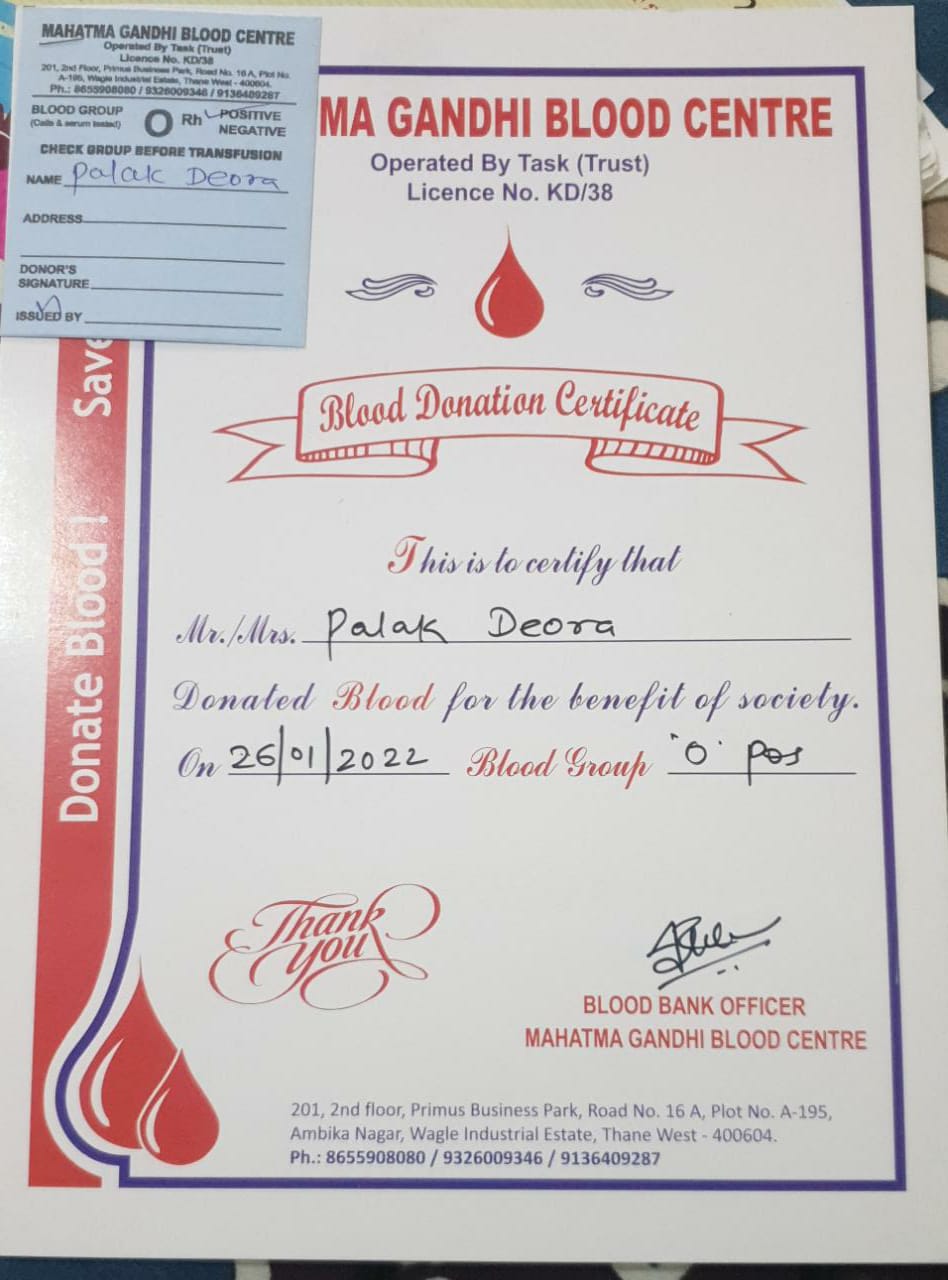 MAHATMA GANDHI BLOOD CENTRE
Operated By Task (Trust)
Licence No. KD/38
201, 2nd Floor, Primus Business Park, Road No. 16 A, Plot No.
A-195, Wagle Industrial Estate, Thane West - 400604.
Ph.: 8655908080 / 9326009346 / 9136409287
BLOOD GROUP
(Cells & serum tested)
O Rh POSITIVE
NEGATIVE
CHECK GROUP BEFORE TRANSFUSION
NAME Palak Deora
ADDRESS
DONOR'S
SIGNATURE
ISSUED BY
MA GANDHI BLOOD CENTRE
Operated By Task (Trust)
Licence No. KD/38
Blood Donation Certificate
This is to certify that
Mr./Mrs. Palak Deora
Donated Blood for the benefit of society.
On 26/01/2022 Blood Group 'O' Pos
Donate Blood ! Save
Thank
You
BLOOD BANK OFFICER
MAHATMA GANDHI BLOOD CENTRE
201, 2nd floor, Primus Business Park, Road No. 16 A, Plot No. A-195,
Ambika Nagar, Wagle Industrial Estate, Thane West - 400604.
Ph.: 8655908080 / 9326009346 / 9136409287